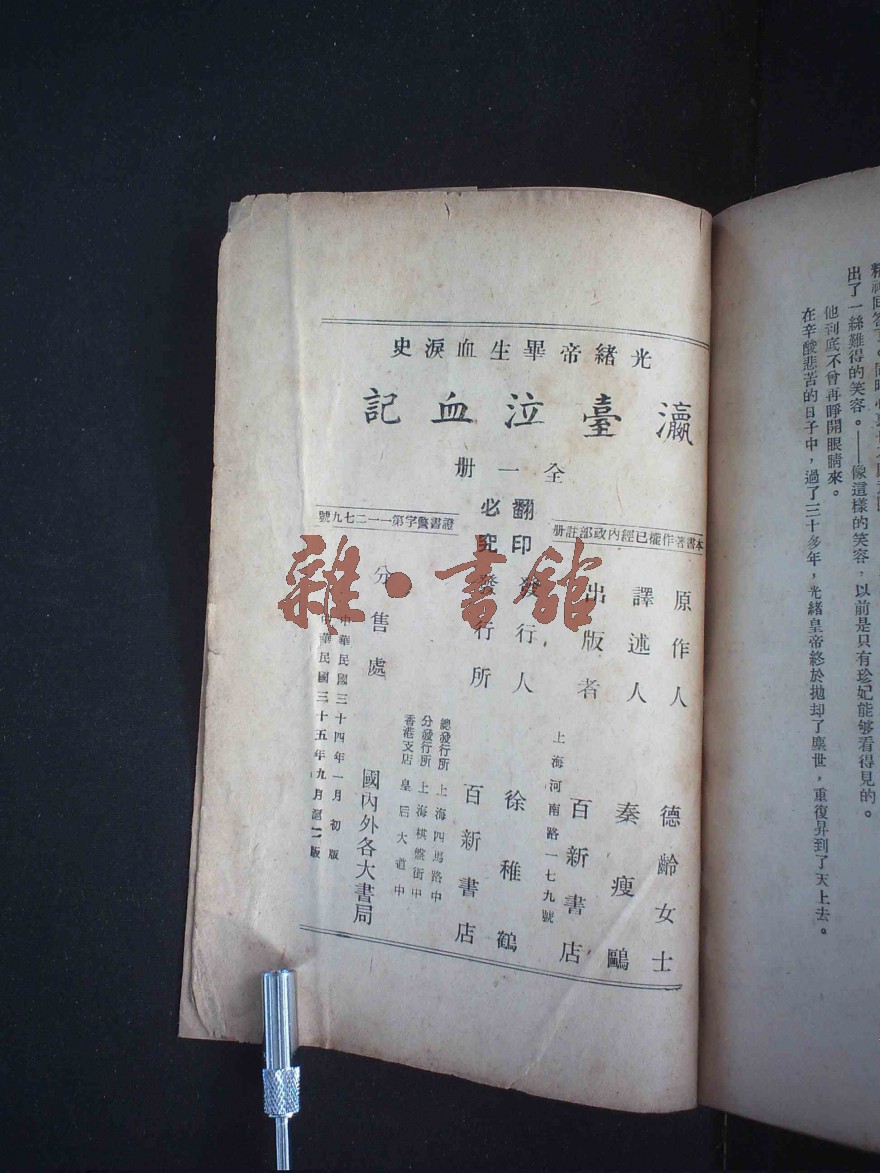 光緒帝畢生血淚史
瀛臺泣血記
全一册
本書著作權已經內政部註册
翻印
必究
證書警字第一一二七九號
原作人 德齡女士
譯述人 秦瘦鷗
出版者 百新書店
上海河南路一七九號
發行人 徐稚鶴
發行所 百新書店
總發行所 上海四馬路中
分發行所 上海棋盤街中
香港支店 皇后大道中
分售處 國內外各大書局
中華民國三十四年一月初版
中華民國三十五年九月滬一版
雜·書館
出了一絲難得的笑容。——像這樣的笑容，以前是只有珍妃能够看得見的。
他到底不曾再睜開眼睛來。
在辛酸悲苦的日子中，過了三十多年，光緒皇帝終於拋却了塵世，重復昇到了天上去。